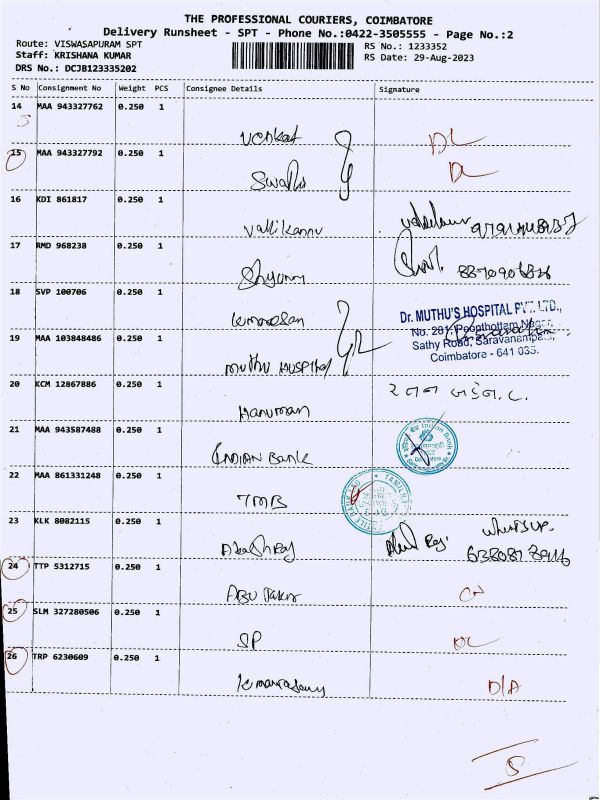 THE PROFESSIONAL COURIERS, COIMBATORE
Delivery Runsheet - SPT - Phone No.:0422-3505555 - Page No.:2
Route: VISWASAPURAM SPT
Staff: KRISHANA KUMAR
DRS No.: DCJB123335202
RS No.: 1233352
RS Date: 29-Aug-2023
S No Consignment No Weight PCS Consignee Details Signature
14 MAA 943327762 0.250 1
Venkat DL
15 MAA 943327792 0.250 1
Swathi DL
16 KDI 861817 0.250 1
Vallikannu
17 RMD 968238 0.250 1
Shyam
18 SVP 100706 0.250 1
Kumaresan
Dr. MUTHU'S HOSPITAL PVT. LTD.,
No. 281, Poonthottam Nagar,
Sathy Road, Saravanampatti,
Coimbatore - 641 035.
19 MAA 103848486 0.250 1
Muthu Hospital
20 KCM 12867886 0.250 1
Hanuman
21 MAA 943587488 0.250 1
INDIAN BANK
Indian Bank
22 MAA 861331248 0.250 1
TMB
23 KLK 8082115 0.250 1
WhatsUp.
Akash Raj
24 TTP 5312715 0.250 1
Abu
25 SLM 327280506 0.250 1
SP DL
26 TRP 6230609 0.250 1
D/A
5